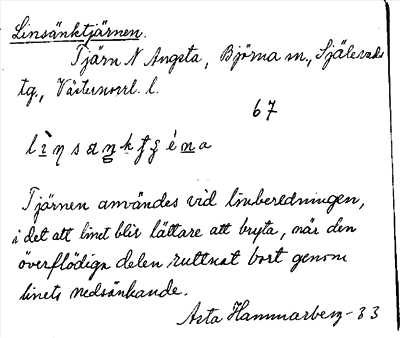 Linsänktjärnen.
Tjärn N Angsta, Björna sn., Själevads
tg., Västernorrl. l.
67
Tjärnen användes vid linberedningen,
i det att linet blir lättare att bryta, när den
överflödiga delen ruttnat bort genom
linets nedsänkande.
Asta Hammarberg - 33